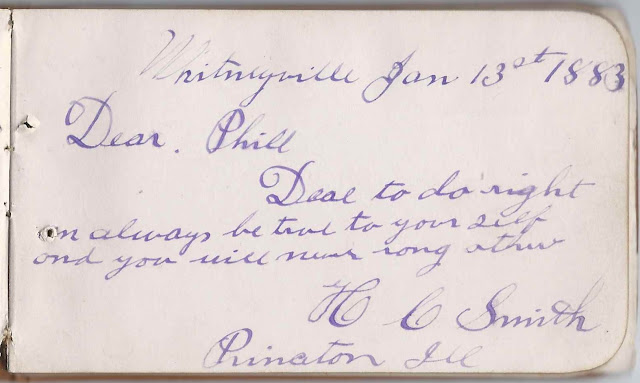 Whitneyville Jan 13st 1883
Dear. Phill
Deal to do right
on always be true to your self
and you will never rong other
H C Smith
Princton Ill